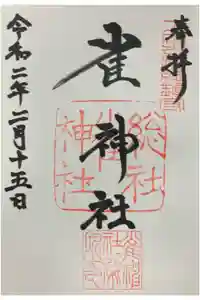 奉拝
雀神社
総社
神社
令和二年二月十五日